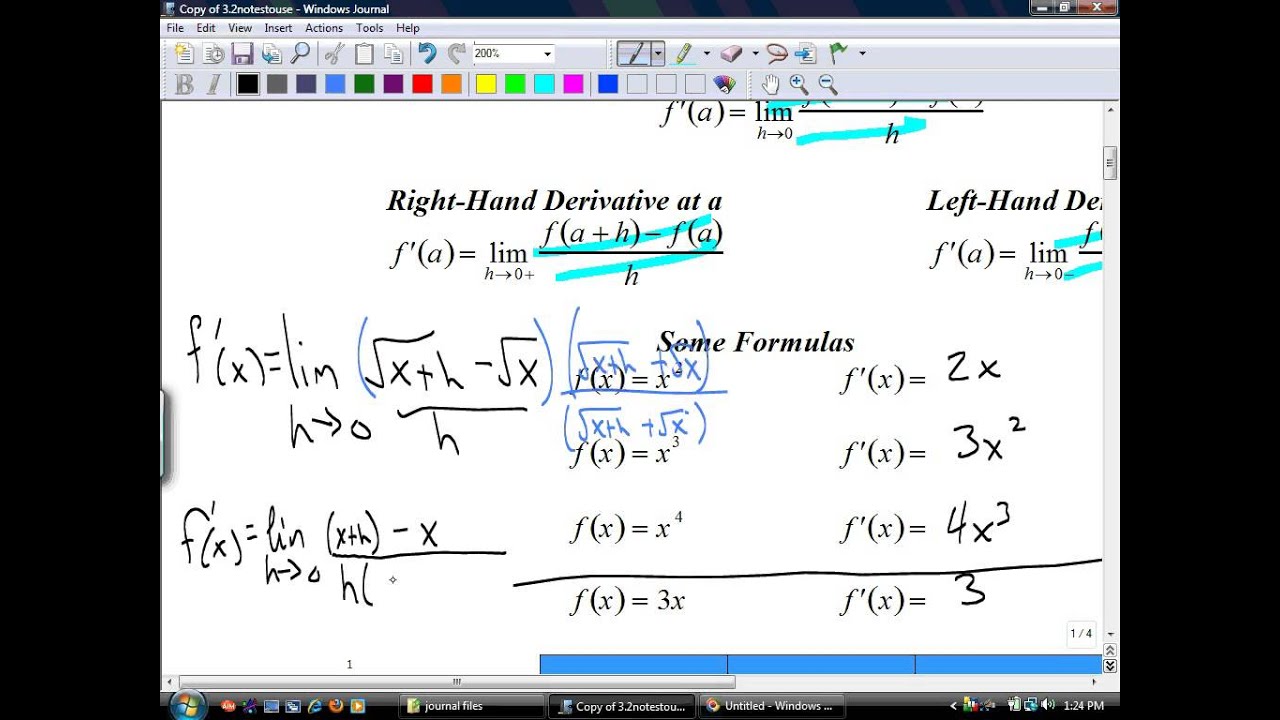 Copy of 3.2notestouse - Windows Journal
File Edit View Insert Actions Tools Help
200%
B I
f'(a) = lim h→0 h
Right-Hand Derivative at a
f'(a) = lim h→0+ f(a + h) − f(a) / h
Left-Hand De
f'(a) = lim h→0− f
f'(x) = lim h→0 (√x+h − √x) / h (√x+h + √x) / (√x+h + √x)
Some Formulas
f(x) = x² f'(x) = 2x
f(x) = x³ f'(x) = 3x²
f'(x) = lim h→0 (x+h) − x / h(
f(x) = x⁴ f'(x) = 4x³
f(x) = 3x f'(x) = 3
1 / 4
1
journal files Copy of 3.2notestou... Untitled - Windows ... 1:24 PM